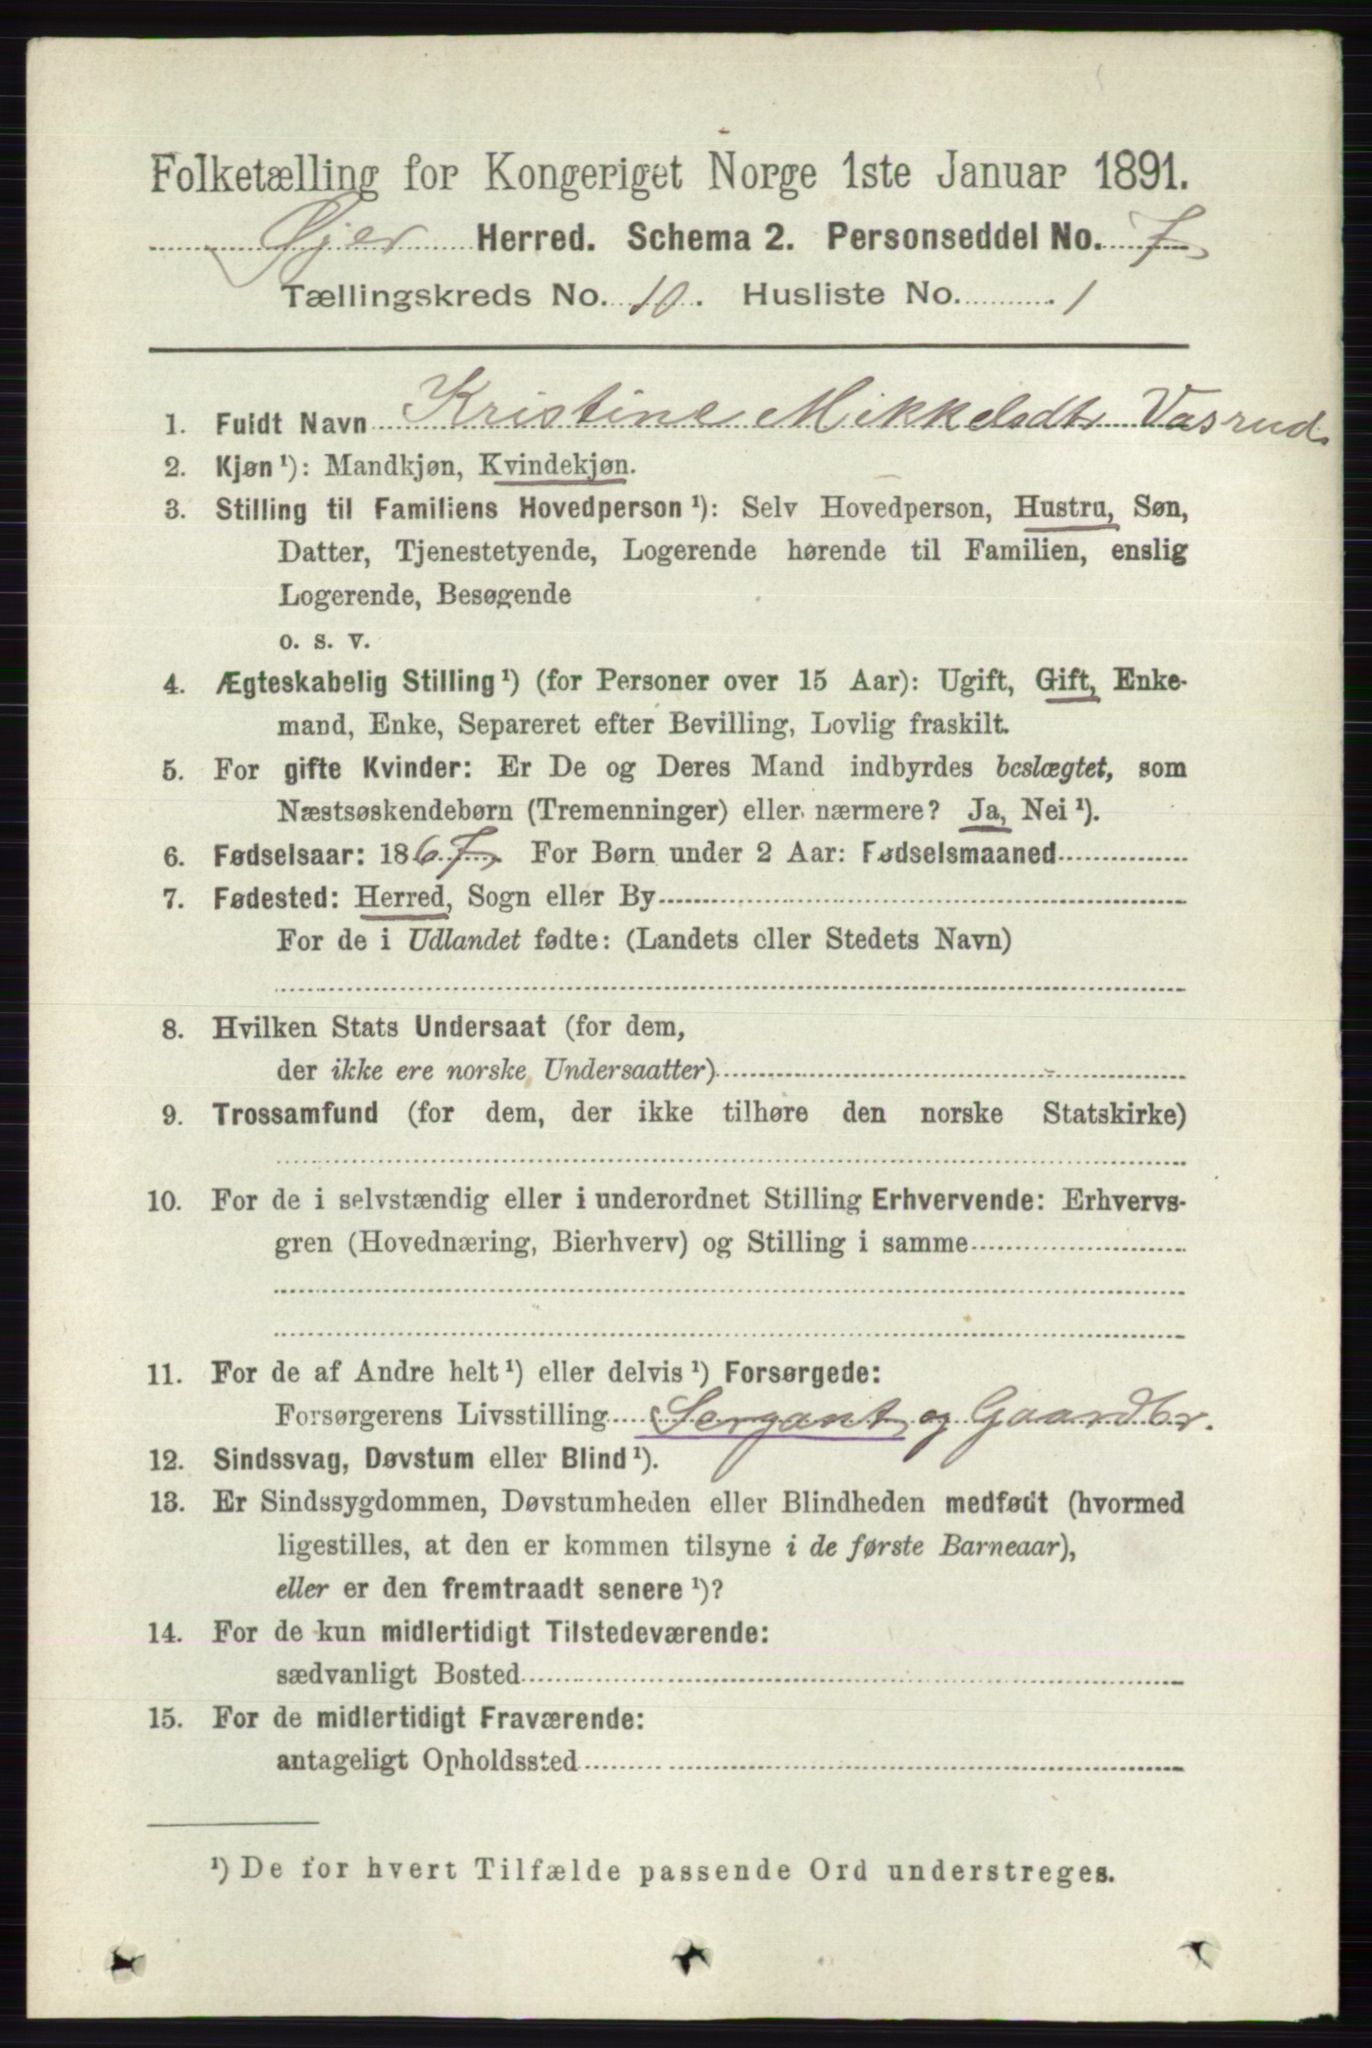 Folketælling for Kongeriget Norge 1ste Januar 1891.
Øjer Herred. Schema 2. Personseddel No. 7
Tællingskreds No. 10. Husliste No. 1
1. Fuldt Navn Kristine Mikkelsdtr Vasrud
2. Kjøn ¹): Mandkjøn, Kvindekjøn.
3. Stilling til Familiens Hovedperson ¹): Selv Hovedperson, Hustru, Søn,
Datter, Tjenestetyende, Logerende hørende til Familien, enslig
Logerende, Besøgende
o. s. v.
4. Ægteskabelig Stilling ¹) (for Personer over 15 Aar): Ugift, Gift, Enke-
mand, Enke, Separeret efter Bevilling, Lovlig fraskilt.
5. For gifte Kvinder: Er De og Deres Mand indbyrdes beslægtet, som
Næstsøskendebørn (Tremenninger) eller nærmere? Ja, Nei ¹).
6. Fødselsaar: 1867 For Børn under 2 Aar: Fødselsmaaned
7. Fødested: Herred, Sogn eller By
For de i Udlandet fødte: (Landets eller Stedets Navn)
8. Hvilken Stats Undersaat (for dem,
der ikke ere norske Undersaatter)
9. Trossamfund (for dem, der ikke tilhøre den norske Statskirke)
10. For de i selvstændig eller i underordnet Stilling Erhvervende: Erhvervs-
gren (Hovednæring, Bierhverv) og Stilling i samme
11. For de af Andre helt ¹) eller delvis ¹) Forsørgede:
Forsørgerens Livsstilling Sergant og Gaardbr.
12. Sindssvag, Døvstum eller Blind ¹).
13. Er Sindssygdommen, Døvstumheden eller Blindheden medfødt (hvormed
ligestilles, at den er kommen tilsyne i de første Barneaar),
eller er den fremtraadt senere ¹)?
14. For de kun midlertidigt Tilstedeværende:
sædvanligt Bosted
15. For de midlertidigt Fraværende:
antageligt Opholdssted
¹) De for hvert Tilfælde passende Ord understreges.